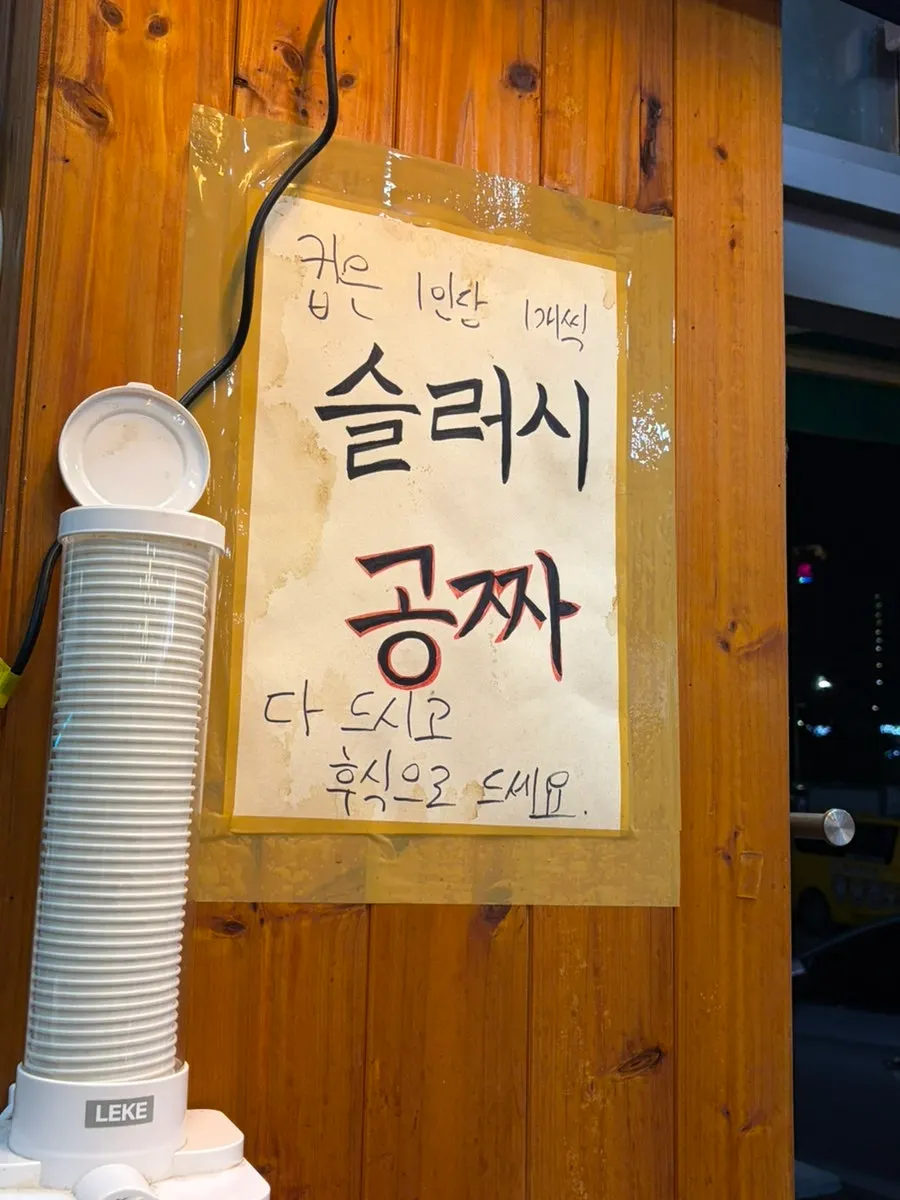 컵은 1인당 1개씩
슬러시
공짜
다 드시고
후식으로 드세요.
LEKE